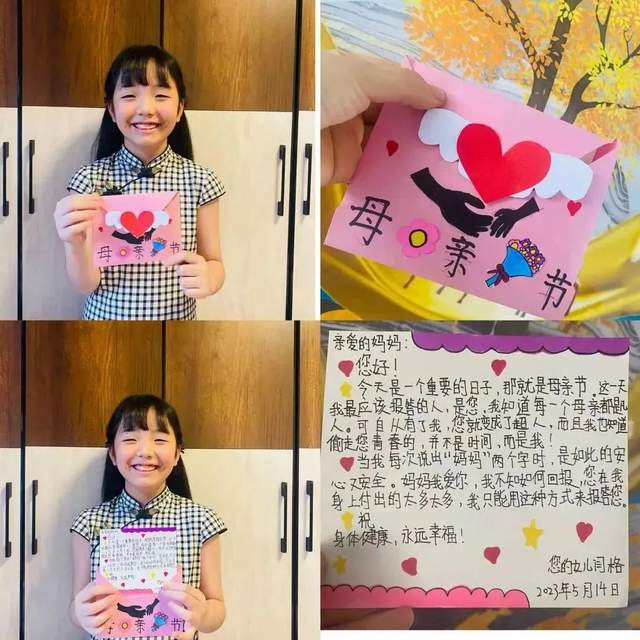 母亲节
母亲节
亲爱的妈妈：
您好！
今天是一个重要的日子，那就是母亲节。这一天
我最应该报答的人，是您。我知道每一个母亲都是凡
人。可自从有了我，您就变成了超人，而且我也知道
偷走您青春的，并不是时间，而是我！
当我每次说出“妈妈”两个字时，是如此的安
心又安全。妈妈我爱你，我不知如何回报，您在我
身上付出的太多太多，我只能用这种方式来报答您。
祝
身体健康，永远幸福！
您的女儿闫格
2023年5月14日
母亲节